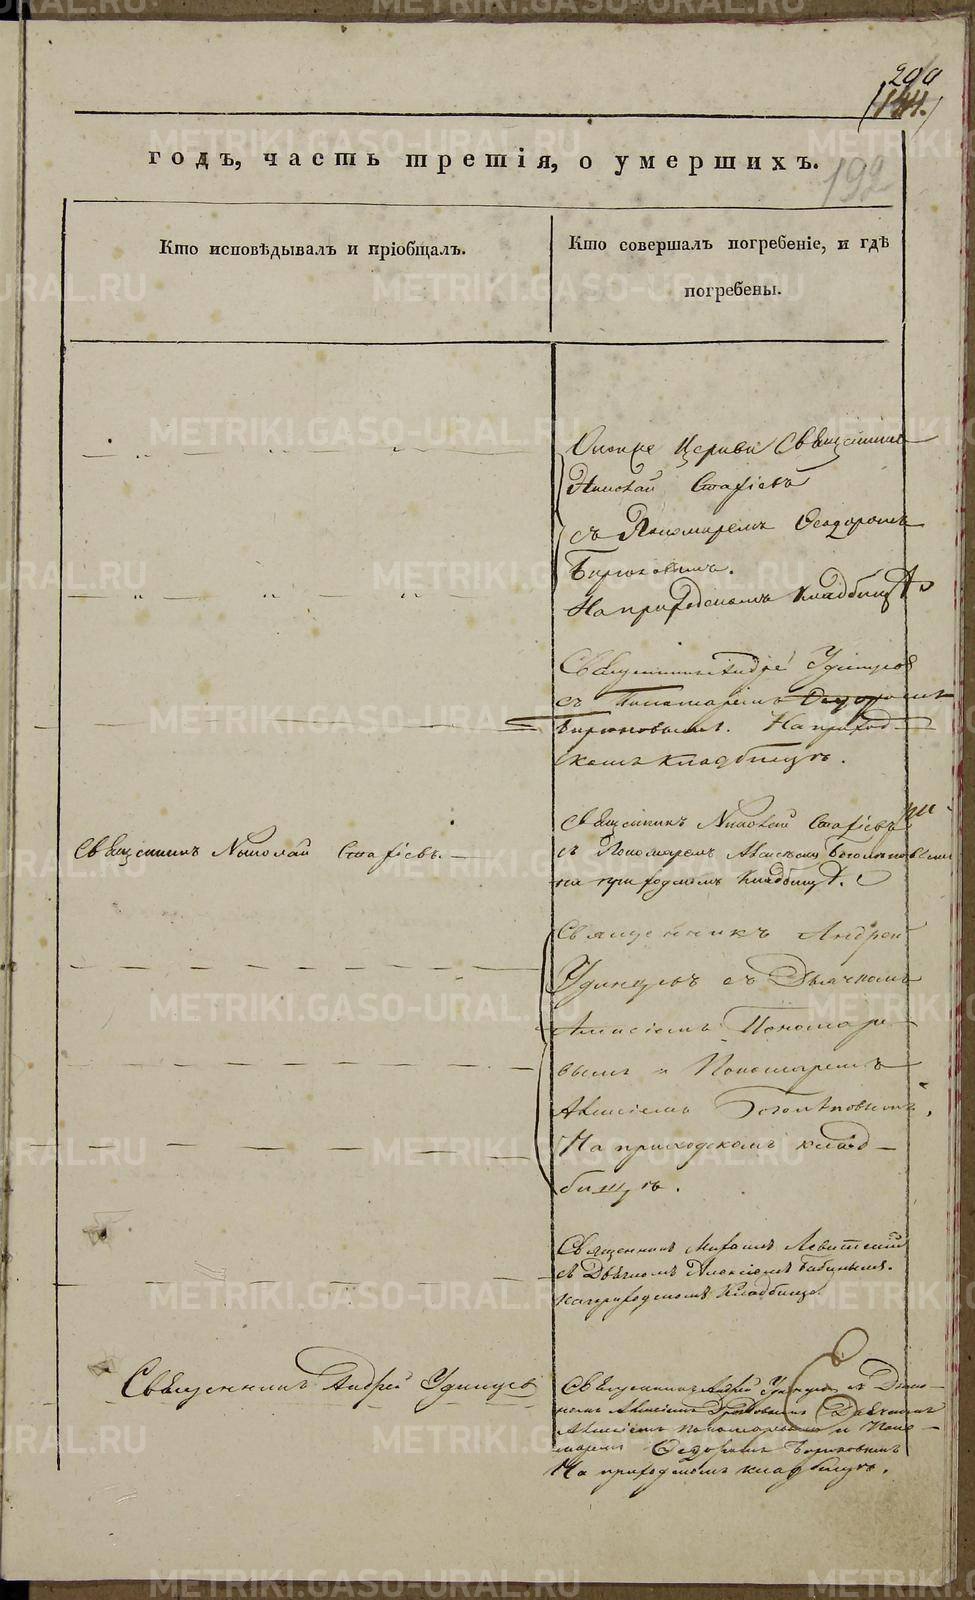 200
144.
192
годъ, часть третія, о умершихъ.
Кто исповѣдывалъ и пріобщалъ.
Кто совершалъ погребеніе, и гдѣ
погребены.
Церкви Священникъ
Николай
съ Пономаремъ Ѳеодоромъ
Бирюковымъ.
На приходскомъ кладбищѣ
Священникъ Андрей Удинцовъ
съ Пономаремъ Ѳедоромъ
Бирюковымъ. На приход-
скомъ кладбищѣ.
Священникъ Николай
Священникъ Николай
съ Пономаремъ Алексѣемъ Боголѣповымъ
на приходскомъ кладбищѣ.
Священникъ Андрей
Удинцовъ съ Дьячкомъ
Алексіемъ Пономаре-
вымъ и Пономаремъ
Алексіемъ Боголѣповымъ,
На приходскомъ клад-
бищѣ.
Священникъ Михаилъ Левитскій
съ Алексіемъ Бабинымъ.
на приходскомъ кладбищѣ.
Священникъ Андрей Удинцовъ
Священникъ Андрей Удинцовъ съ Дьяко-
номъ Алексіемъ Дьячкомъ
Алексіемъ Пономаревымъ и Поно-
маремъ Ѳедоромъ Бирюковымъ
На приходскомъ кладбищѣ.
METRIKI.GASO-URAL.RU